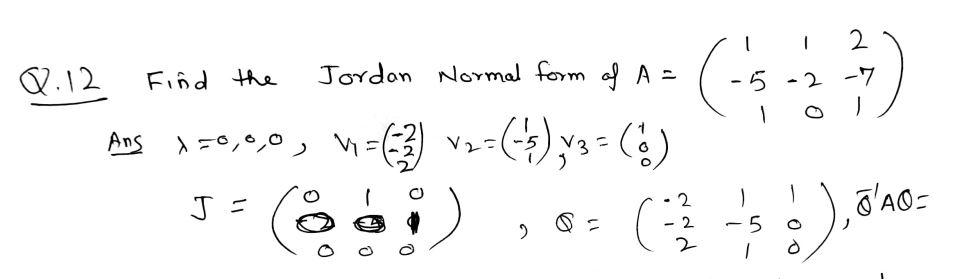 Q.12 Find the Jordan Normal form of A = ( 1 1 2
-5 -2 -7
1 0 1 )
Ans λ = 0,0,0, V1 = (-2 -2 2) V2 = (1 -5 1), V3 = (1 0 0)
J = ( 0 1 0
0 0 0 ), Q = ( -2 1 1
-2 -5 0
2 1 0 ), Q⁻¹AQ =